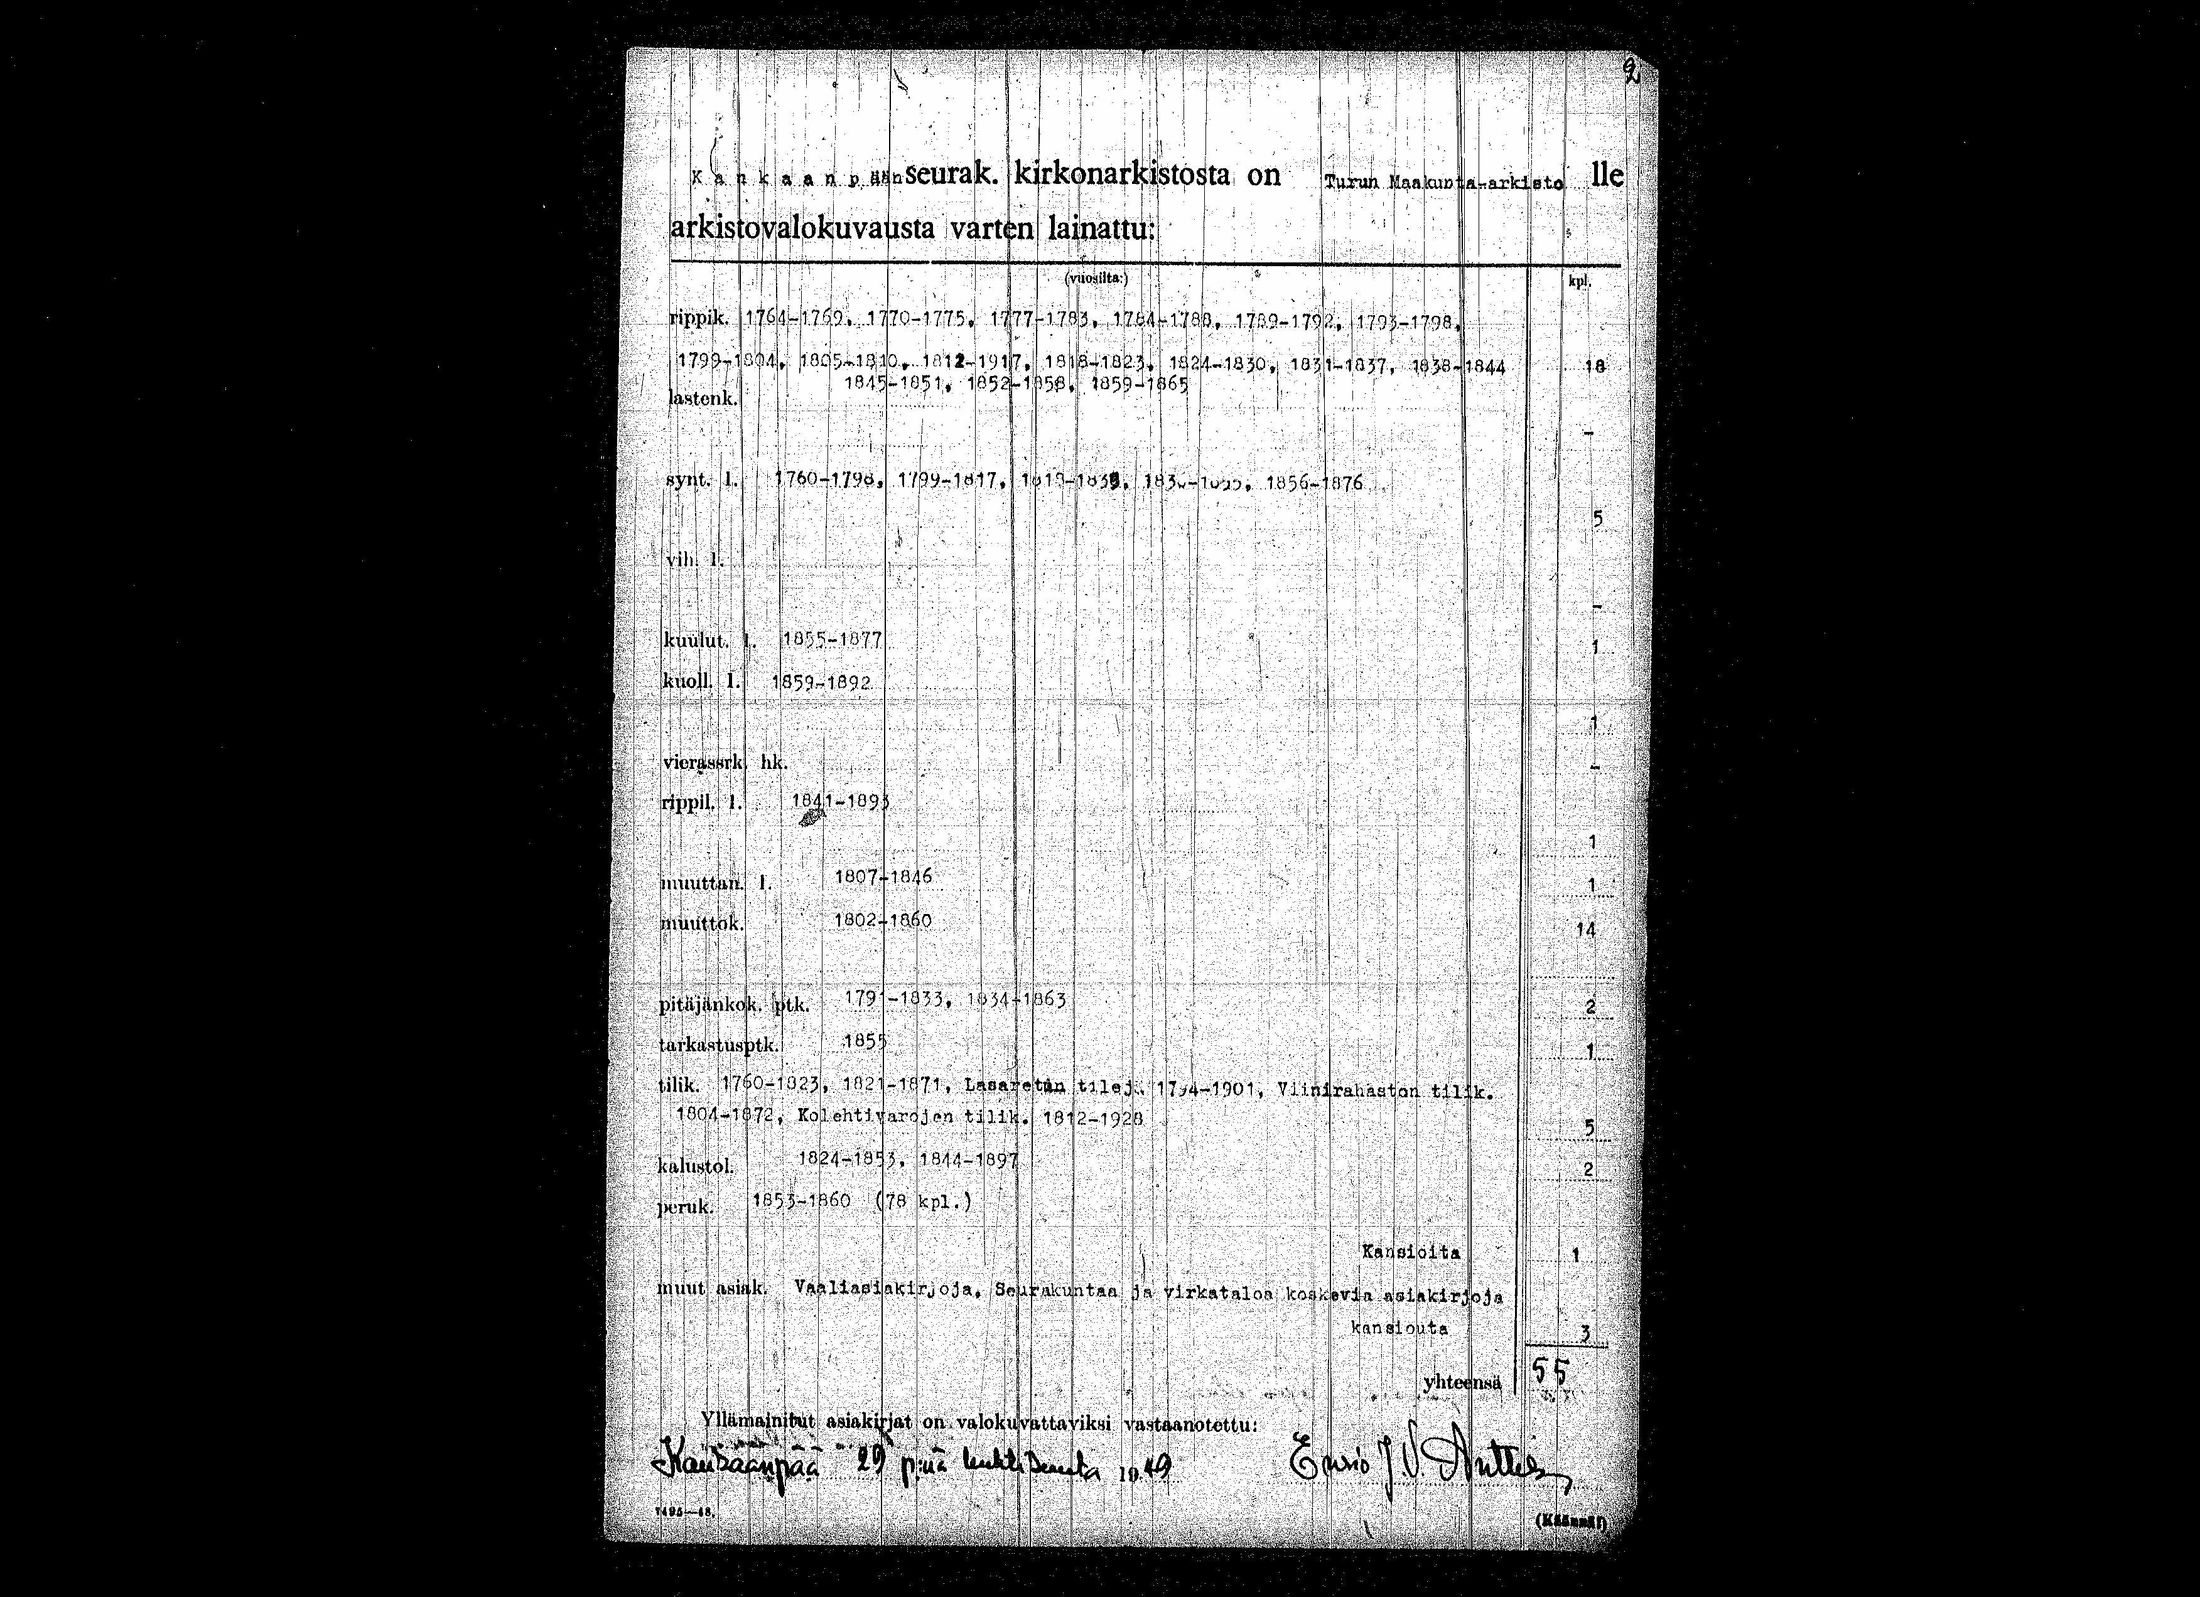 2
Kankaanpään seurak. kirkonarkistosta on Turun Maakunta-arkisto lle
arkistovalokuvausta varten lainattu:
(vuosilta:) kpl.
rippik. 1764-1769, 1770-1775, 1777-1783, 1784-1788, 1789-1792, 1793-1798,
1799-1804, 1805-1810, 1812-1917, 1818-1823, 1824-1830, 1831-1837, 1838-1844 18
1845-1851, 1852-1858, 1859-1865
lastenk. -
synt. l. 1760-1798, 1799-1817, 1856-1876 5
vih. l. -
kuulut. l. 1855-1877 1
kuoll. l. 1859-1892 1
vierassrk. hk. -
rippil. l. 1841-1893 1
muuttan. l. 1807-1846 1
muuttok. 1802-1860 14
pitäjänkok. ptk. 1791-1833, 1834-1863 2
tarkastusptk. 1855 1
tilik. 1760-1823, 1821-1871, Lasaretin tilej. 1794-1901, Viinirahaston tilik.
1804-1872, Kolehtivarojen tilik. 1812-1928 5
kalustol. 1824-1853, 1844-1897 2
peruk. 1853-1860 (78 kpl.)
Kansioita 1
muut asiak. Vaaliasiakirjoja, Seurakuntaa ja virkataloa koskevia asiakirjoja
kansiouta 3
yhteensä 55
Yllämainitut asiakirjat on valokuvattaviksi vastaanotettu:
Kankaanpää 29 p:nä huhtikuuta 1949 Ensio J.V. Anttila
7495—48.
(Käännä!)